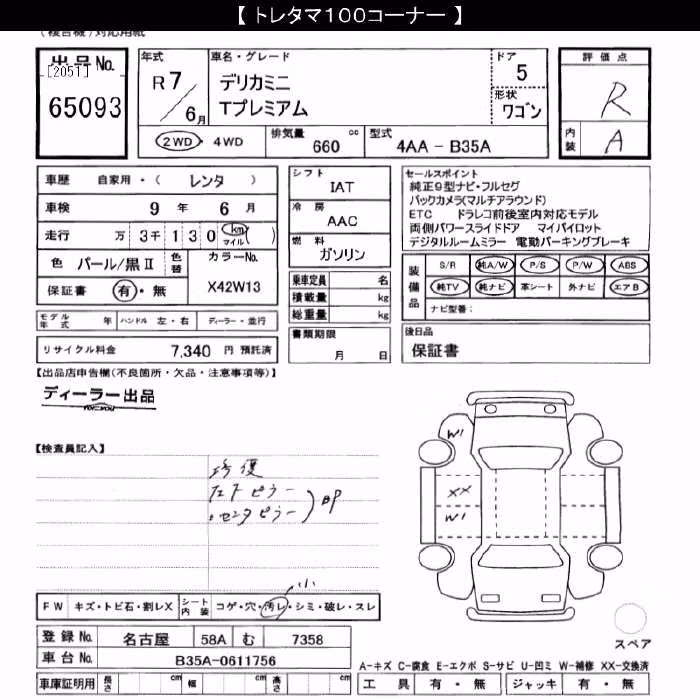 【 トレタマ100コーナー 】
(複合機)対応用紙
出品No.
[2051]
65093
年式
R7/6月
車名・グレード
デリカミニ
Tプレミアム
ドア
5
形状
ワゴン
評価点
R
内装
A
2WD・4WD
排気量
660 cc
型式
4AA - B35A
車歴 自家用・( レンタ )
車検 9年 6月
走行 万 3千130 km マイル ( )
色 パール/黒Ⅱ
色替
カラーNo.
X42W13
保証書 有・無
モデル年式 年
ハンドル 左・右
ディーラー・並行
リサイクル料金 7,340 円 預託済
シフト
IAT
冷房
AAC
燃料
ガソリン
乗車定員 名
積載量 kg
総重量 kg
書類期限
月 日
セールスポイント
純正9型ナビ・フルセグ
バックカメラ(マルチアラウンド)
ETC ドラレコ前後室内対応モデル
両側パワースライドドア マイパイロット
デジタルルームミラー 電動パーキングブレーキ
装備品
S/R 純A/W P/S P/W ABS
純TV 純ナビ 革シート 外ナビ エアB
ナビ型番:
後日品
保証書
【出品店申告欄(不良箇所・欠品・注意事項等)】
ディーラー出品
【検査員記入】
修復
フロトピラー
・センタピラー
) BP
W1
XX
W1
小
FW キズ・トビ石・割レX
シート内装 コゲ・穴・汚レ・シミ・破レ・スレ
スペア
登録No. 名古屋 58A む 7358
車台No. B35A-0611756
車庫証明用 長さ cm 幅 cm 高さ cm
A-キズ C-腐食 E-エクボ S-サビ U-凹ミ W-補修 XX-交換済
工具 有・無 ジャッキ 有・無